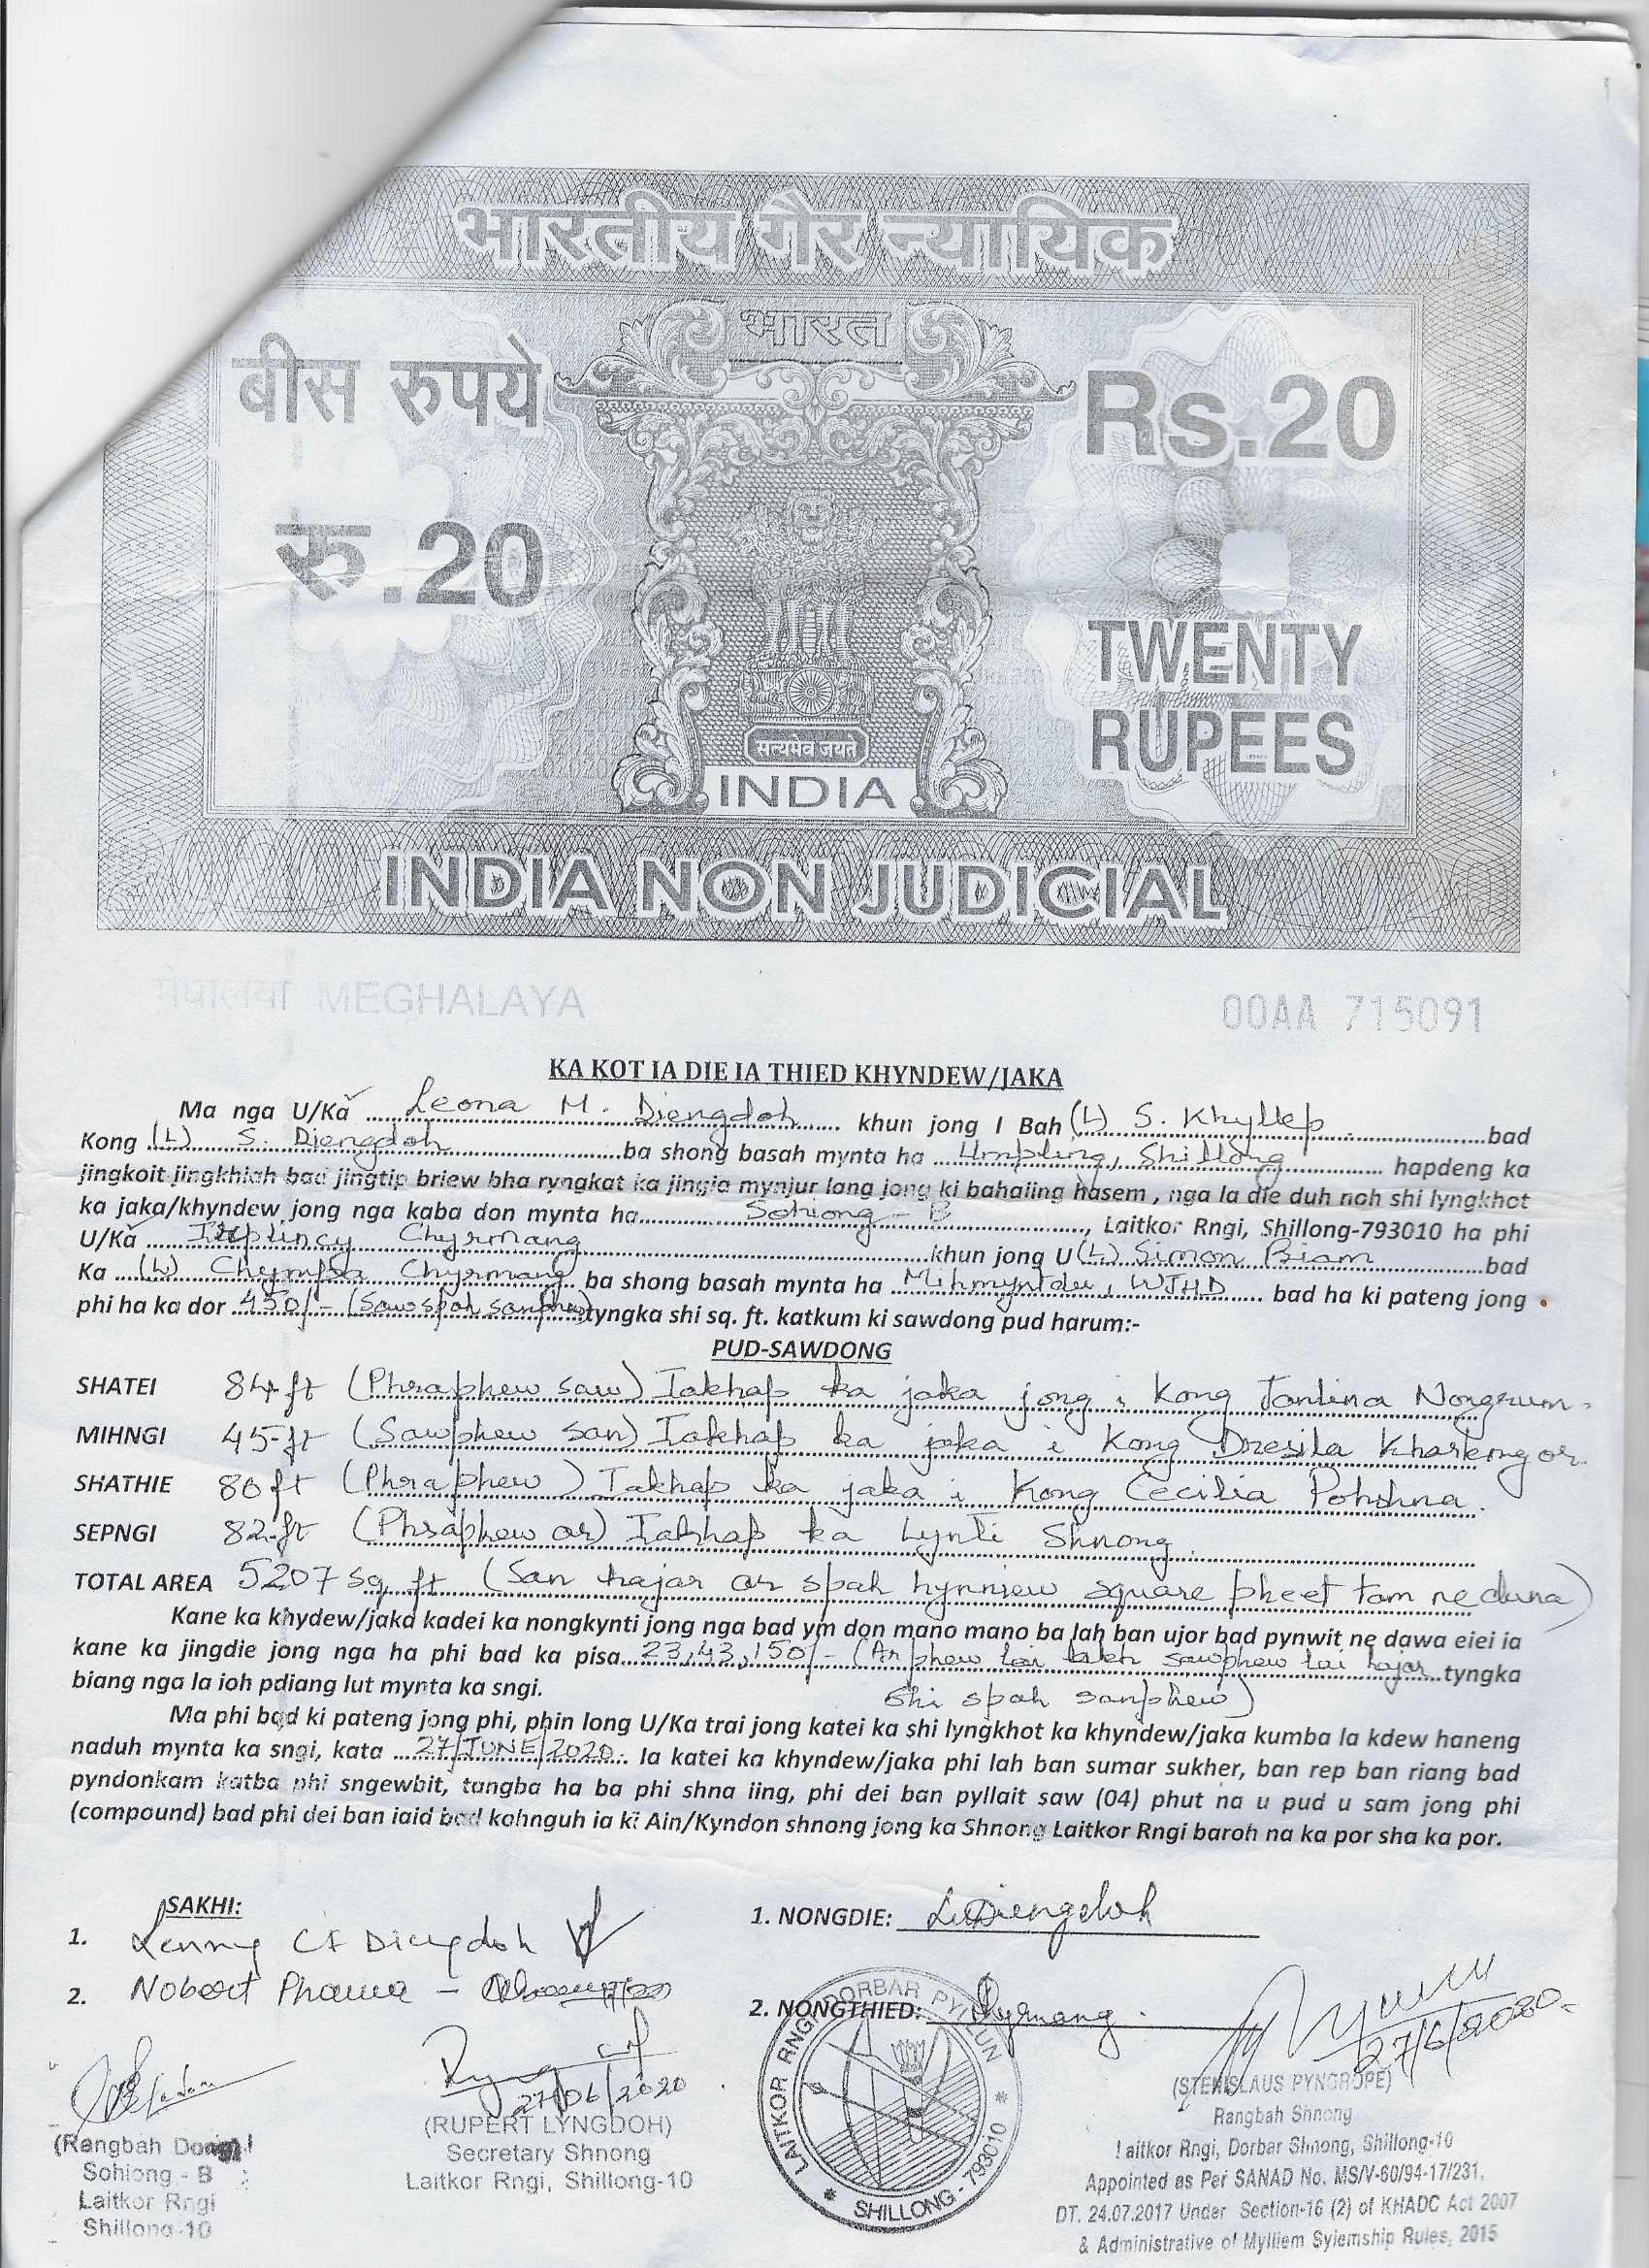 भारतीय गैर न्यायिक
भारत
बीस रुपये
Rs.20
रु.20
TWENTY
RUPEES
सत्यमेव जयते
INDIA
INDIA NON JUDICIAL
मेघालय MEGHALAYA
00AA 715091
KA KOT IA DIE IA THIED KHYNDEW/JAKA
Ma nga U/Ka Leona M. Diengdoh khun jong I Bah (L) S. Khyllep bad
Kong (L) S. Diengdoh ba shong basah mynta ha Umpling, Shillong hapdeng ka
jingkoit jingkhiah bad jingtip briew bha ryngkat ka jingia mynjur lang jong ki bahaiing hasem , nga la die duh noh shi lyngkhot
ka jaka/khyndew jong nga kaba don mynta ha Sohiong - B, Laitkor Rngi, Shillong-793010 ha phi
U/Ka Chyrmang khun jong U (L) Simon Biam bad
Ka (L) Chyrmang ba shong basah mynta ha Mihmyntdu, WJHD bad ha ki pateng jong
phi ha ka dor 450/- (Sawspah sanphew) tyngka shi sq. ft. katkum ki sawdong pud harum:-
PUD-SAWDONG
SHATEI 84 ft (Phraphew saw) Iakhap ka jaka jong i Kong Tanlina Nongrum.
MIHNGI 45 ft (Sawphew san) Iakhap ka jaka i Kong Dresila Kharkongor
SHATHIE 80 ft (Phraphew) Iakhap ka jaka i Kong Cecilia Pohshna.
SEPNGI 82 ft (Phraphew ar) Iakhap ka Lynti Shnong
TOTAL AREA 5207 sq. ft (San hajar ar spah hynniew square pheet tam ne duna)
Kane ka khydew/jaka kadei ka nongkynti jong nga bad ym don mano mano ba lah ban ujor bad pynwit ne dawa eiei ia
kane ka jingdie jong nga ha phi bad ka pisa 23,43,150/- (Arphew lai lakh sawphew lai hajar tyngka
shi spah sanphew)
biang nga la ioh pdiang lut mynta ka sngi.
Ma phi bad ki pateng jong phi, phin long U/Ka trai jong katei ka shi lyngkhot ka khyndew/jaka kumba la kdew haneng
naduh mynta ka sngi, kata 27/JUNE/2020. Ia katei ka khyndew/jaka phi lah ban sumar sukher, ban rep ban riang bad
pyndonkam katba phi sngewbit, tangba ha ba phi shna iing, phi dei ban pyllait saw (04) phut na u pud u sam jong phi
(compound) bad phi dei ban iaid bad kohnguh ia ki Ain/Kyndon shnong jong ka Shnong Laitkor Rngi baroh na ka por sha ka por.
SAKHI:
1. Lenny CF Diengdoh
2. Nobert Phawa -
1. NONGDIE: LMDiengdoh
2. NONGTHIED: Chyrmang.
27/6/2020
27/06/2020
(Rangbah Dong)
Sohiong - B
Laitkor Rngi
Shillong-10
(RUPERT LYNGDOH)
Secretary Shnong
Laitkor Rngi, Shillong-10
LAITKOR RNGI DORBAR PYLLUN
SHILLONG - 793010
(STENISLAUS PYNGROPE)
Rangbah Shnong
Laitkor Rngi, Dorbar Shnong, Shillong-10
Appointed as Per SANAD No. MS/V-60/94-17/231,
DT. 24.07.2017 Under Section-16 (2) of KHADC Act 2007
& Administrative of Mylliem Syiemship Rules, 2015